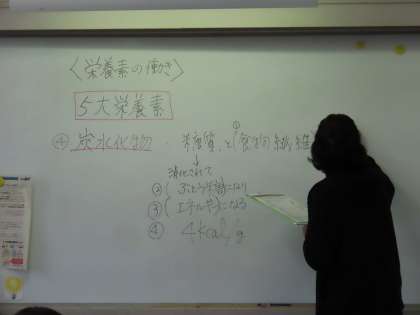 〈栄養素の働き〉
5大栄養素
④ 炭水化物・糖質と(①食物繊維
↓
消化されて
②(ぶどう糖になり
③(エネルギーになる
④ 4kcal/g